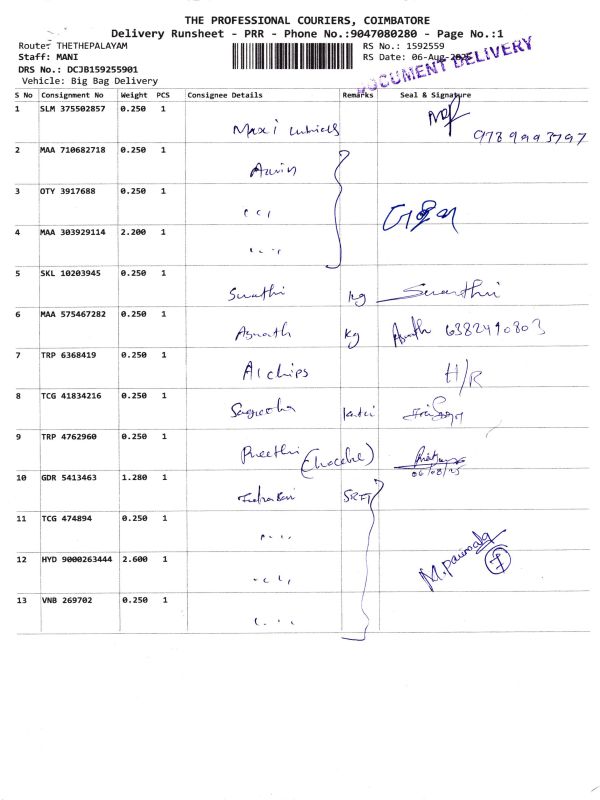 THE PROFESSIONAL COURIERS, COIMBATORE
Delivery Runsheet - PRR - Phone No.:9047080280 - Page No.:1
Route: THETHEPALAYAM RS No.: 1592559
Staff: MANI RS Date: 06-Aug-2025
DRS No.: DCJB159255901
Vehicle: Big Bag Delivery
DOCUMENT DELIVERY
S No Consignment No Weight PCS Consignee Details Remarks Seal & Signature
1 SLM 375502857 0.250 1
Maxi 9789993797
2 MAA 710682718 0.250 1
3 OTY 3917688 0.250 1
" "
4 MAA 303929114 2.200 1
" "
5 SKL 10203945 0.250 1
Swathi kg Swathi
6 MAA 575467282 0.250 1
kg 6382490803
7 TRP 6368419 0.250 1
A1 chips H/R
8 TCG 41834216 0.250 1
Sageetha
9 TRP 4762960 0.250 1
Preethi
06/08/25
10 GDR 5413463 1.280 1
11 TCG 474894 0.250 1
" "
12 HYD 9000263444 2.600 1
" " M. Parimala
13 VNB 269702 0.250 1
" "